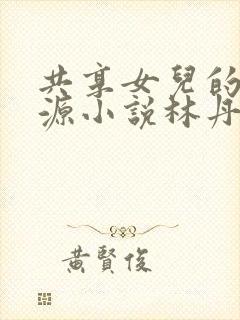 共享女兒的
源小說林丹
黃賢俊